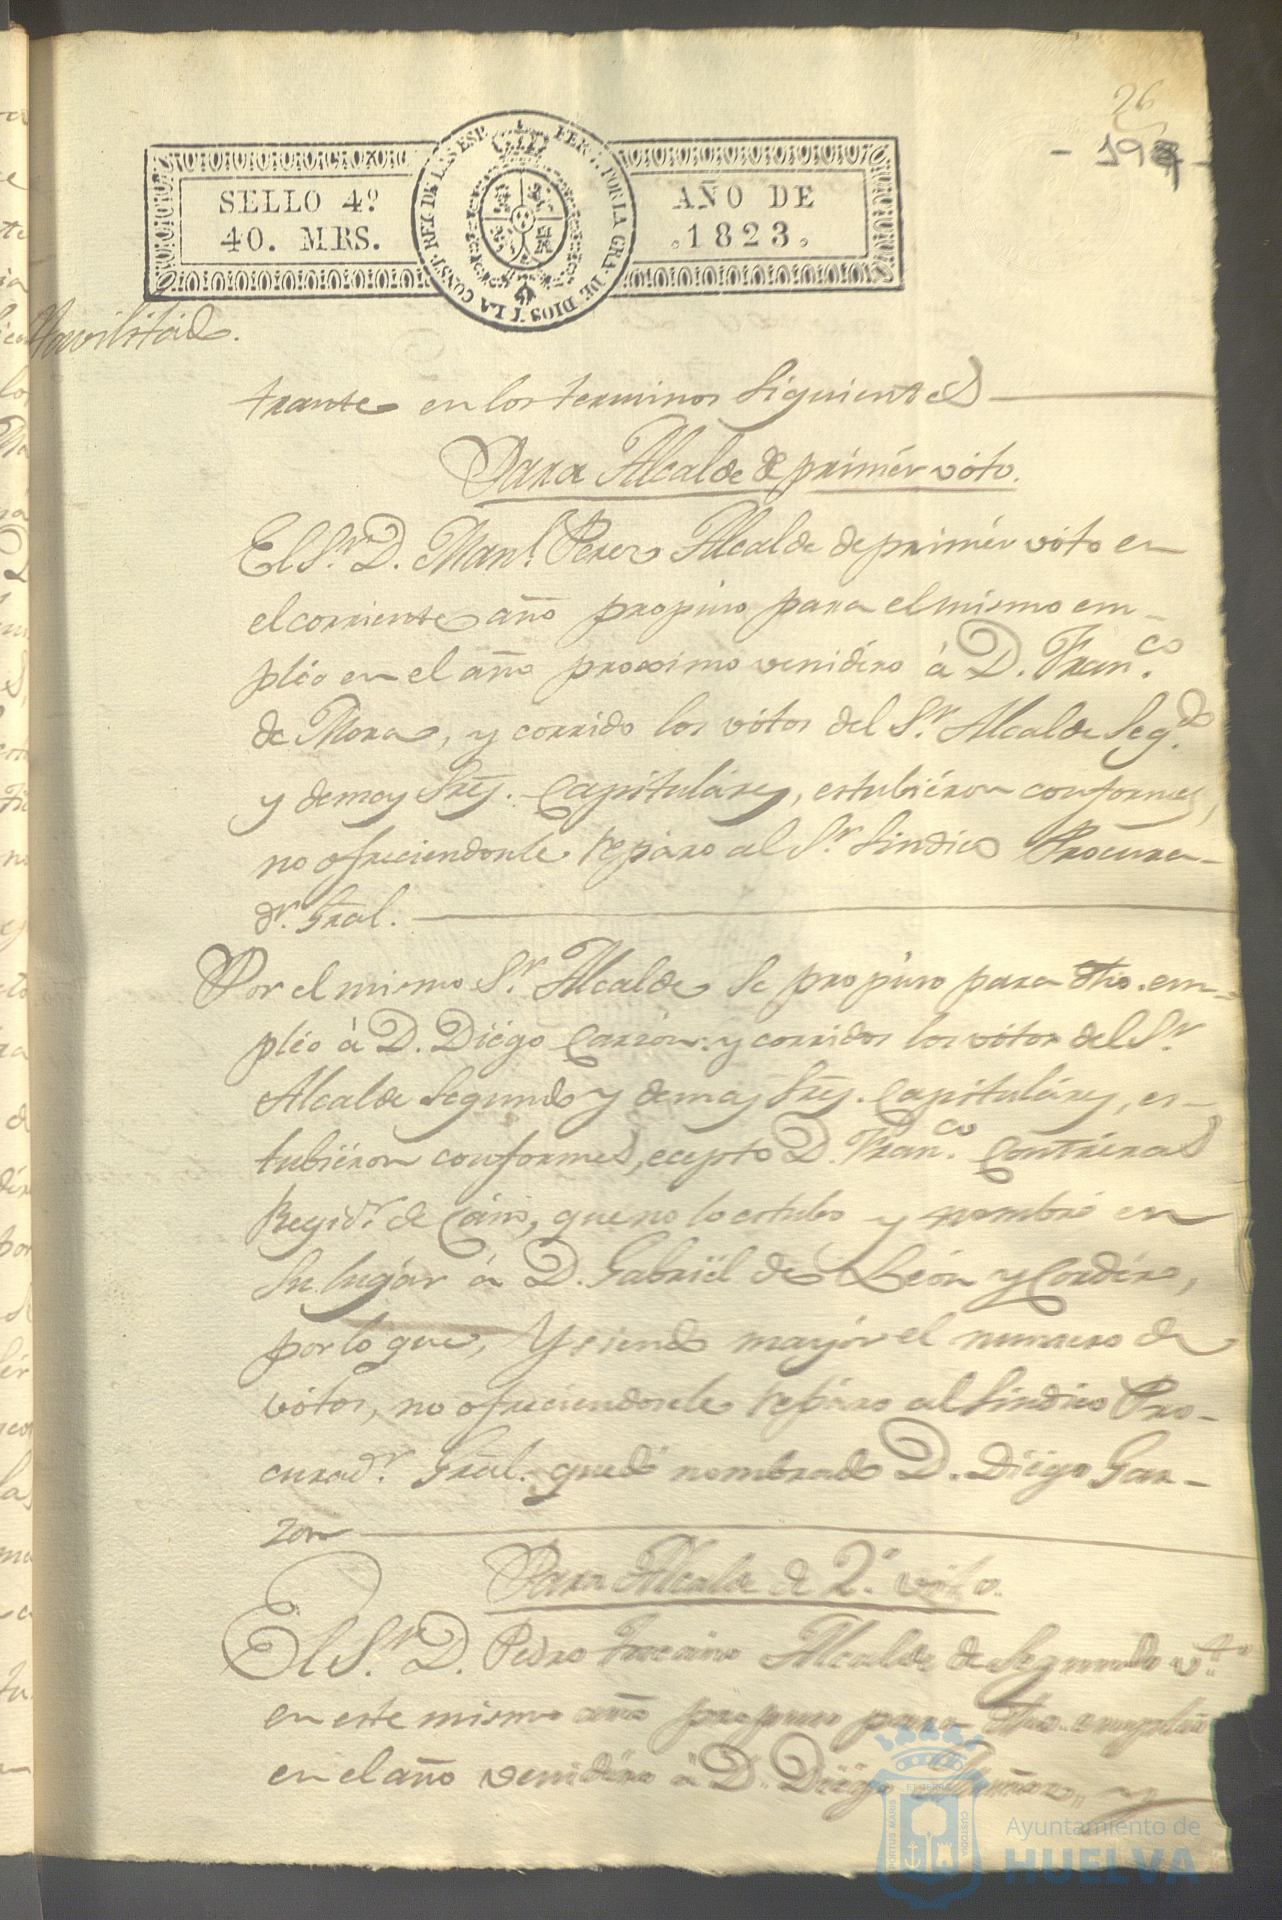 26
- 197 -
SELLO 4º
40. MRS.
FERN. 7º POR LA GRA. DE DIOS Y LA CONST. REY DE LAS ESP.
AÑO DE
.1823.
Havilitád.
trante en los terminos siguientes
Para Alcalde de primér vóto.
El S.r D. Man.l Perez Alcalde de primér vóto en
el corriente año propuso para el mismo em-
pléo en el año proximo venidéro á D. Fran.co
de Mora, y corrido los vótos del S.r Alcalde Seg.do
y demas Sres. Capituláres, estubiéron conformes,
no ofreciendosele repáro al S.r Sindico Procura-
d.r Gral.
Por el mismo S.r Alcalde se propuso para dho. em-
pléo á D. Diégo Garzón. y corridos los vótos del S.r
Alcalde Segundo y demas Sres. Capituláres, es-
tubiéron conformes, ecepto D. Fran.co Contréras
Regid.r de Cáno, que no lo estubo y nombró en
su lugár á D. Gabriël de León y Cordéro,
por lo que, y siendo mayór el numero de
vótos, no ofreciendosele repáro al Sindico Pro-
curad.r Gral. quedó nombrado D. Diégo Gar-
zon
Para Alcalde de 2.º vóto.
El S.r D. Pedro Alcalde de Segundo v.to
en este mismo año propuso para dho. empléo
en el año venidéro á D. Diégo y
PORTUS MARIS
ET TERRAE
CUSTODIA
Ayuntamiento de
HUELVA